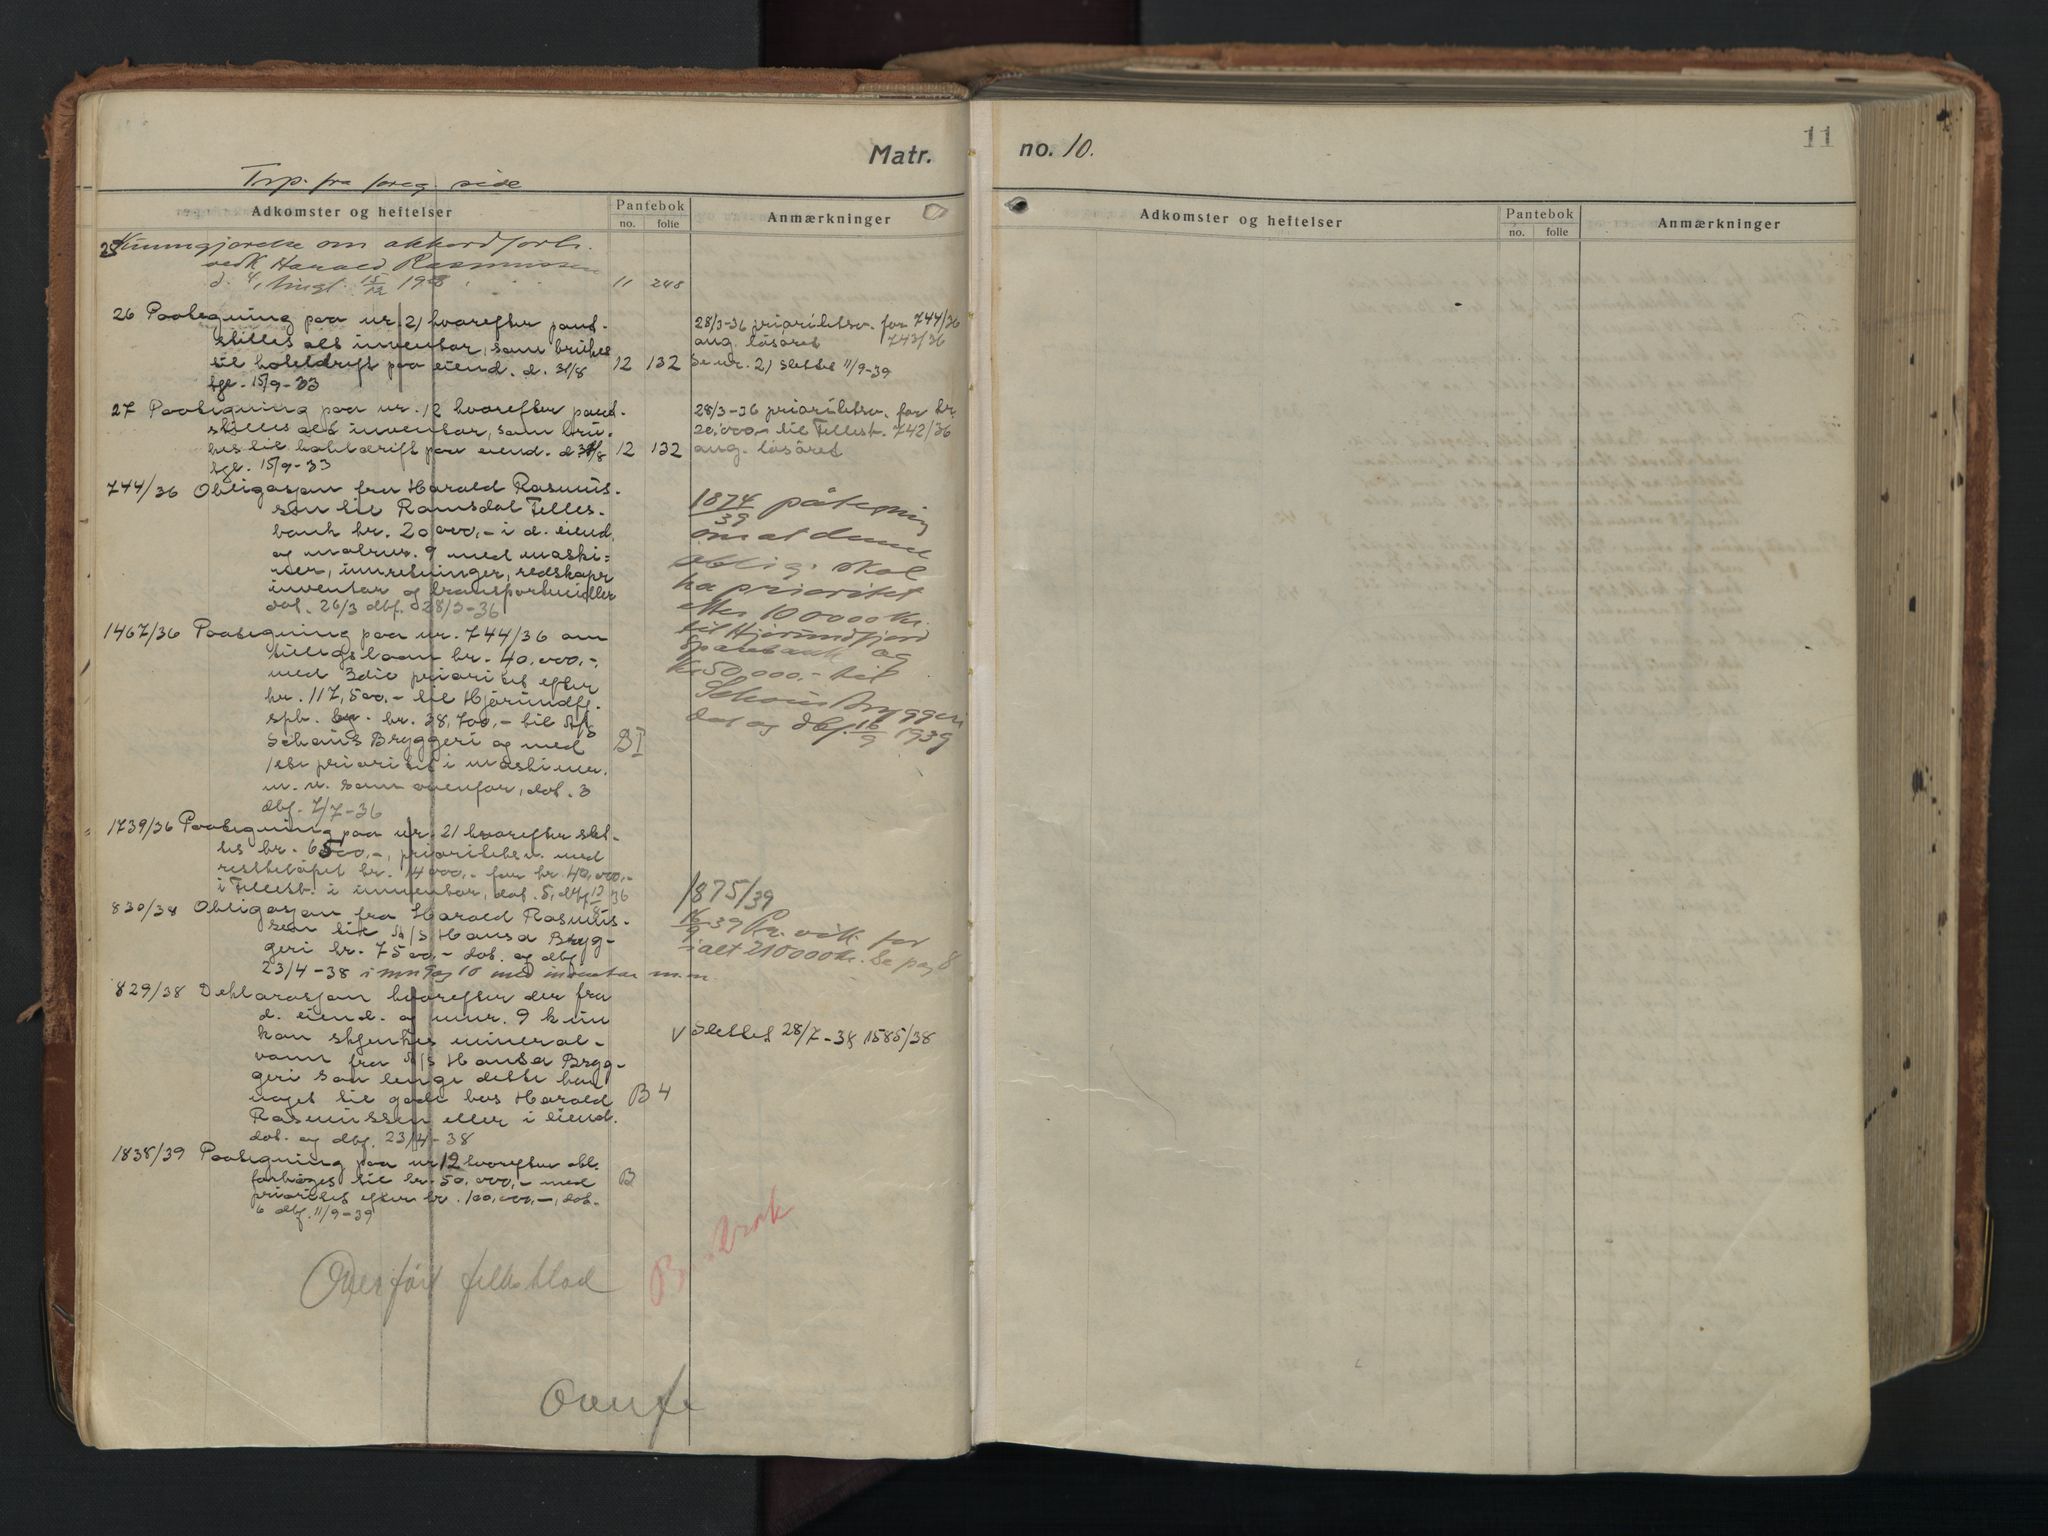 Matr.
no. 10.
11
Trsp. fra foreg. side
Adkomster og heftelser
Pantebok
no. folie
Anmærkninger
Adkomster og heftelser
Pantebok
no. folie
Anmærkninger
25 Kunngjørelse om akkordforh.
vedk Harald Rasmussen
d. tingl. 15/12 19
11 248
26 Paategning paa nr. 21 hvorefter pant-
stilles alt inventar, som brukes
til hoteldrift paa eiend. d. 31/8
tgl. 15/9-33
12 132
28/3-36 prioritetsv. for 744/36
ang. løsøret 743/36
Se nr. 21 Slettet 11/9-39
27 Paategning paa nr. 12 hvorefter pant-
stilles alt inventar, som bru-
kes til hoteldrift paa eiend. d. 31/8
tgl. 15/9-33
12 132
28/3-36 prioritetsv. for kr.
20.000.- til Fellesb. 742/36
ang. løsøret
744/36 Obligasjon fra Harald Rasmus-
sen til Romsdal Felles-
bank kr. 20.000,- i d. eiend.
og matrnr. 9 med maski-
ner, innretninger, redskaper
inventar og transportmidler
dat. 26/3 dbf. 28/3-36
1874/39 påtegning
om at denne
oblig. skal
ha prioritet
etter 10000 kr.
til Hjørundfjord
sparebank og
kr. 50,000.- til
Schous Bryggeri
dat og dbf. 16/9 1939
1467/36 Paategning paa nr. 744/36 om
tilleggslaan kr. 40.000,-,
med 3die prioritet efter
kr. 117,500,- til Hjørundfj.
spb. kr. 38,700,- til A/S
Schous Bryggeri og med
1ste prioritet i maskiner,
m. v. som ovenfor, dat. 3
dbf. 7/7-36
B I
1739/36 Paategning paa nr. 21 hvorefter slet-
tes kr. 6500,-, prioritetsv. med
restbeløpet kr. 14000,- for kr. 40,000,-
i Fellesb. i inventar, dat. 5, dbf 12/8 36
830/38 Obligasjon fra Harald Rasmus-
sen til A/S Hansa Bryg-
geri kr. 7500,- dat. og dbf
23/4-38 i mnr 9 og 10 med inventar m.m.
1875/39
16/9-39 Pr. vik. for
ialt 210000 kr. Se pag 8
829/38 Deklarasjon hvorefter der fra
d. eiend. og mnr. 9 kun
kan skjenkes mineral-
vann fra A/S Hansa Bryg-
geri saa lenge dette har
noget til gode hos Harald
Rasmussen eller i eiend.
dat. og dbf. 23/4-38
B 4
V Slettet 28/7-38 1585/38
1838/39 Paategning paa nr 12 hvorefter obl.
forhøges til kr. 50,000,- med
prioritet efter kr. 100,000,-, dat.
6 dbf. 11/9-39
B
Overført fellesblad
Overf.